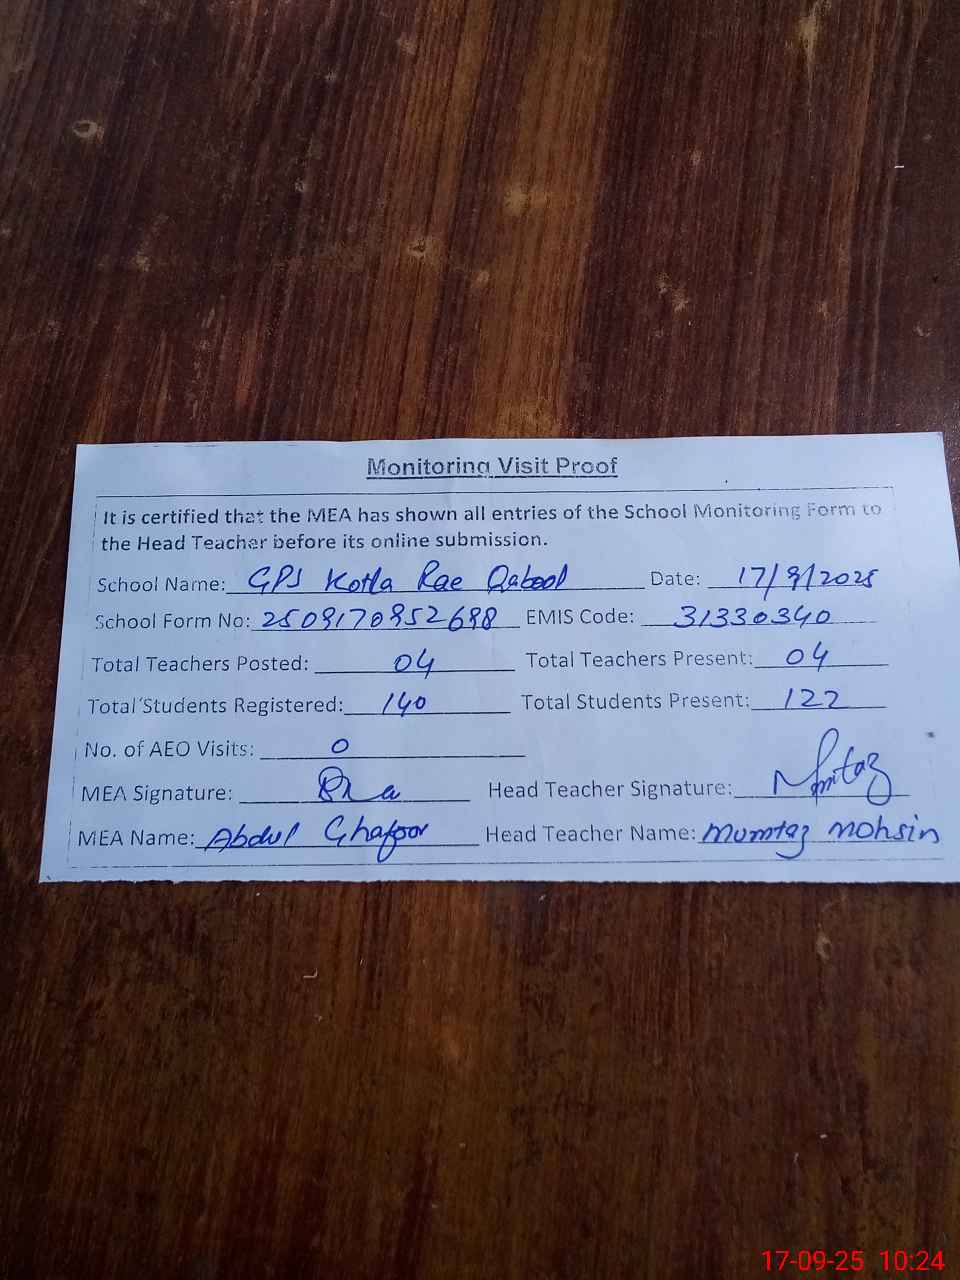 Monitoring Visit Proof
It is certified that the MEA has shown all entries of the School Monitoring Form to
the Head Teacher before its online submission.
School Name: GPS Kotla Rae Qabool Date: 17/9/2025
School Form No: 2509170952698 EMIS Code: 31330340
Total Teachers Posted: 04 Total Teachers Present: 04
Total Students Registered: 140 Total Students Present: 122
No. of AEO Visits: 0
MEA Signature: Head Teacher Signature: Mumtaz
MEA Name: Abdul Ghafoor Head Teacher Name: Mumtaz Mohsin
17-09-25 10:24